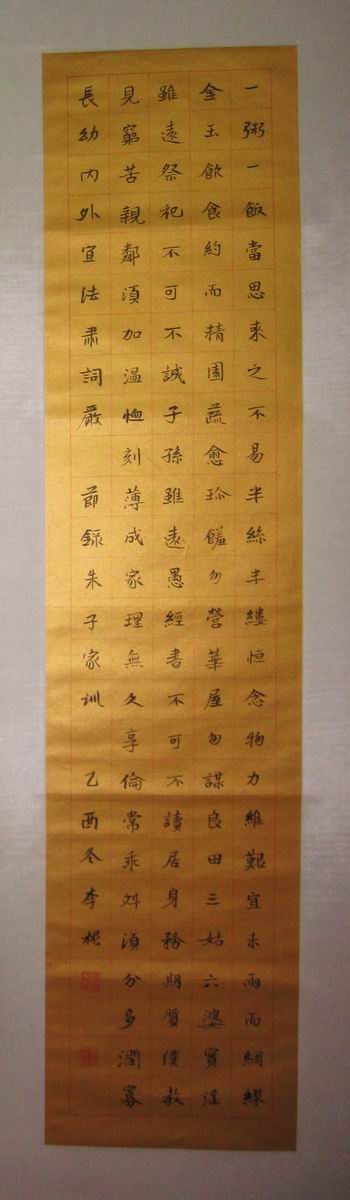 一粥一飯當思來之不易半絲半縷恒念物力維艱宜未雨而綢繆
金玉飲食約而精園蔬愈珍饈勿營華屋勿謀良田三姑六婆實淫
雖遠祭祀不可不誠子孫雖遠愚經書不可不讀居身務期質僕教
見窮苦親鄰須加溫恤刻薄成家理無久享倫常乖舛須分多潤寡
長幼内外宜法肅詞嚴 節錄朱子家训 乙酉冬李